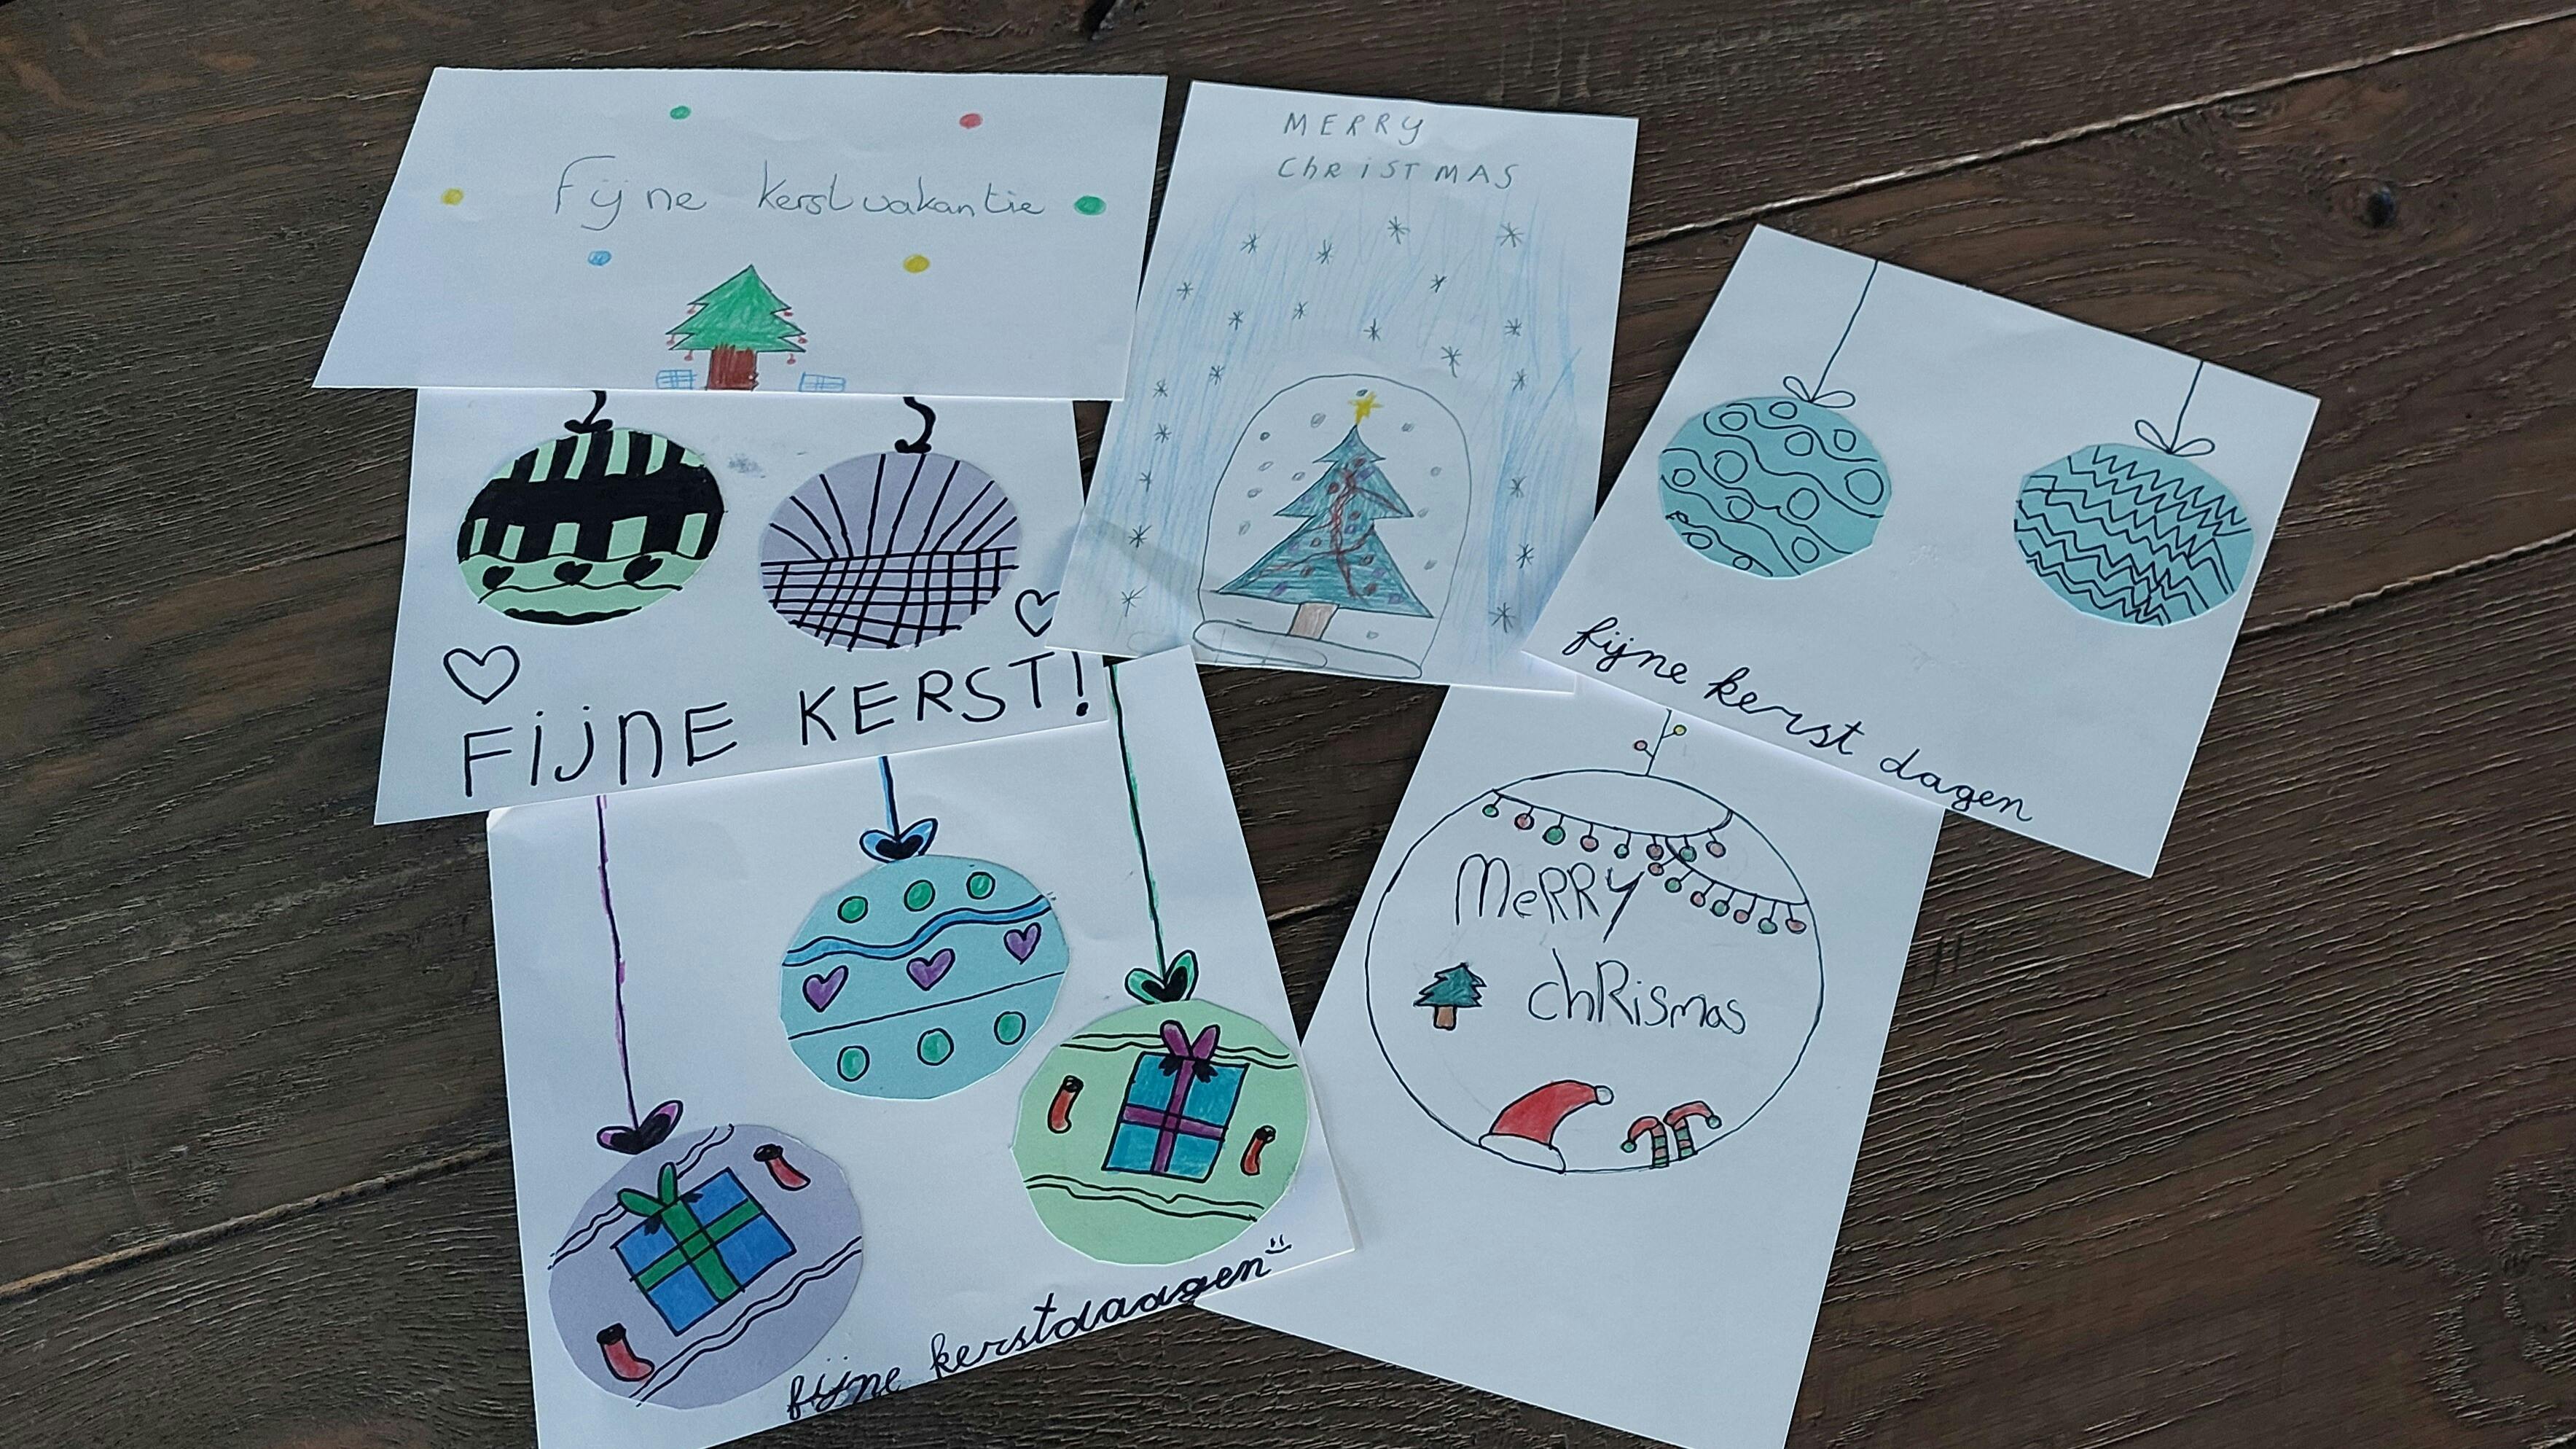 Fijne kerstvakantie
MERRY
ChRiSTMAS
FijnE KERST!
fijne kerst dagen
MeRRY
chRismas
fijne kerstdaagen